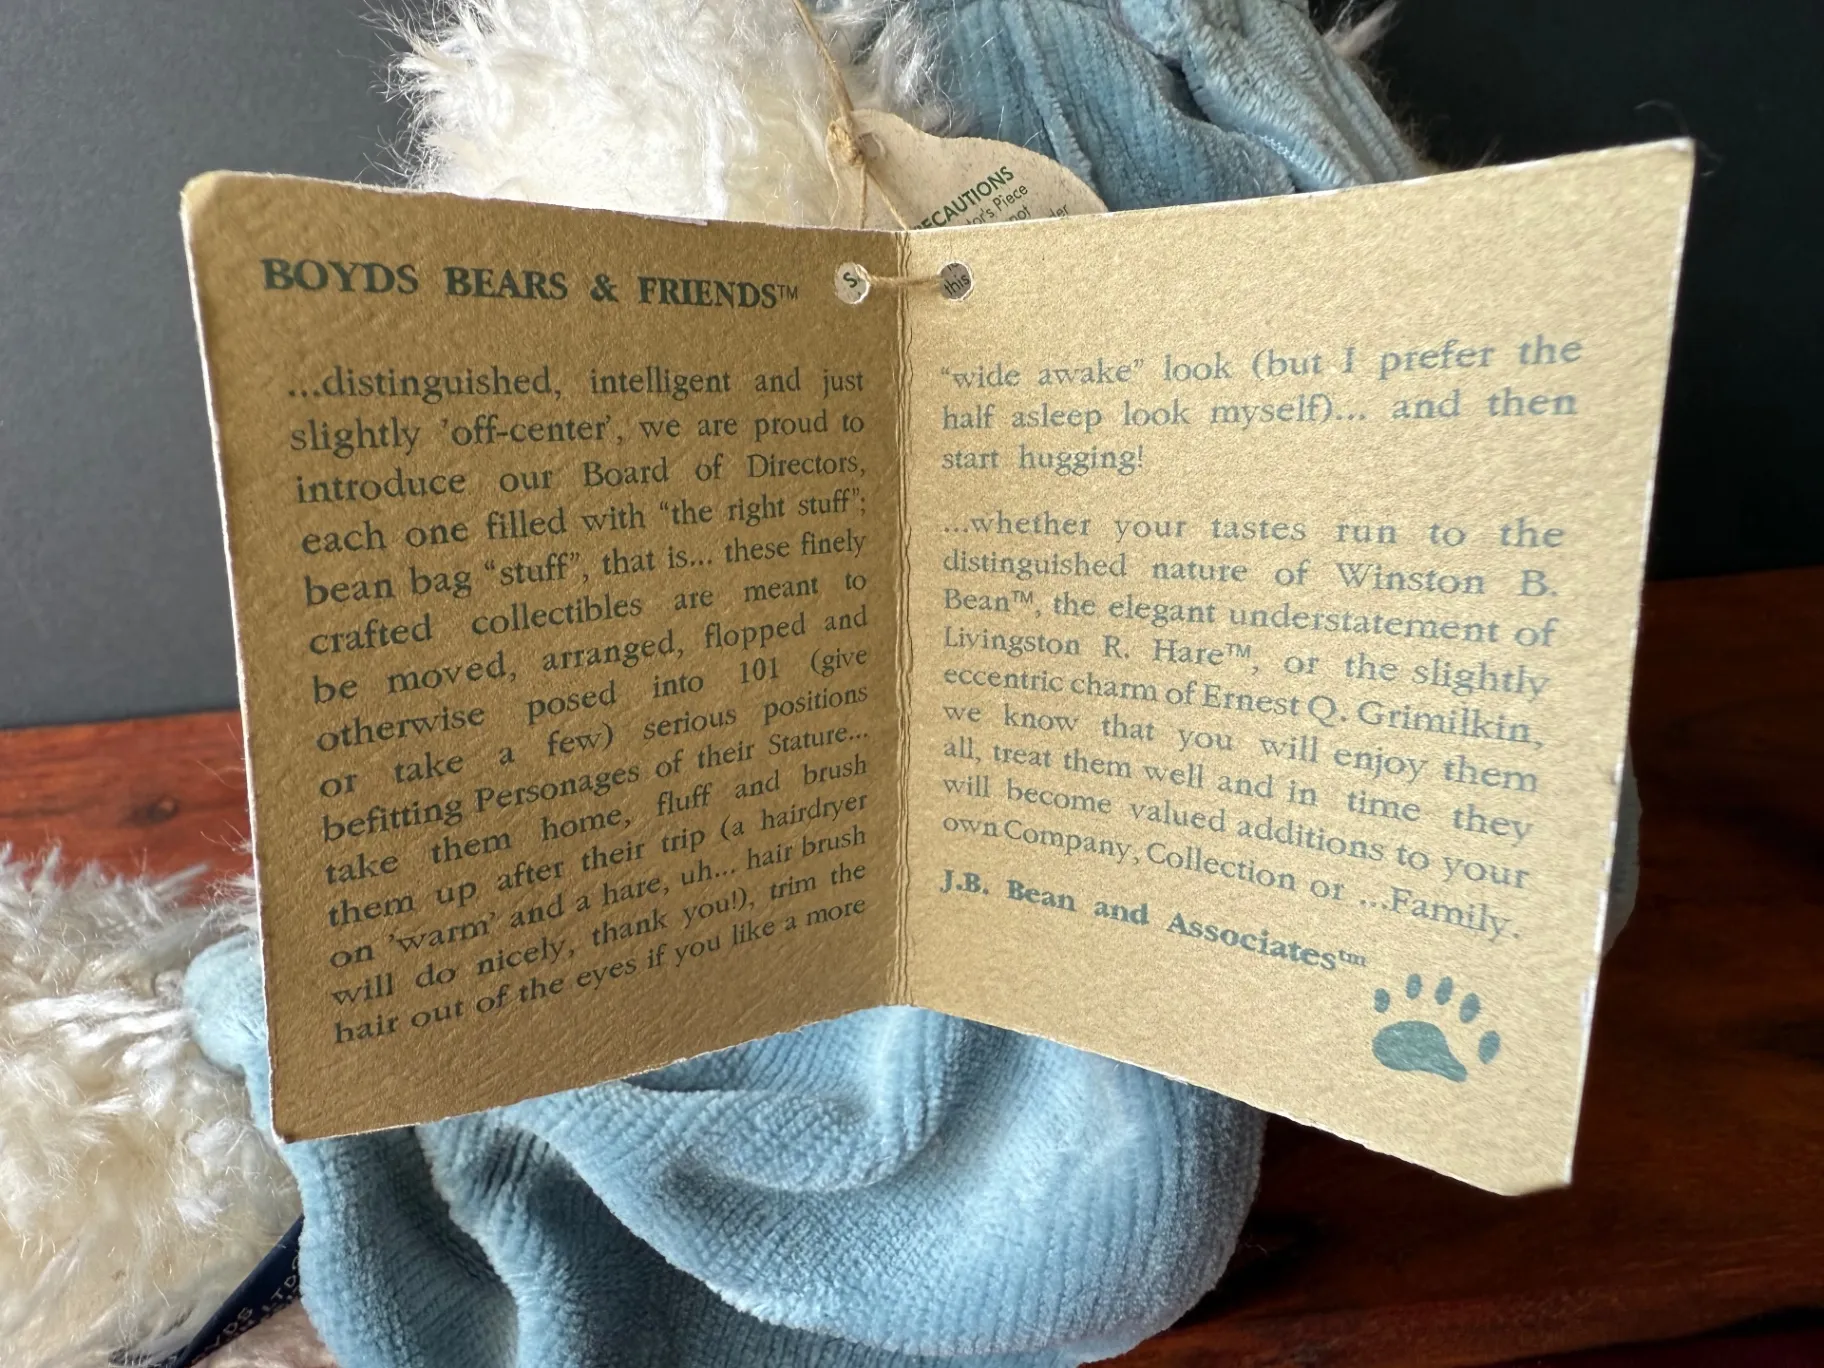 ECAUTIONS
tor's Piece
not
der
S
this
BOYDS BEARS & FRIENDS™
...distinguished, intelligent and just
slightly 'off-center', we are proud to
introduce our Board of Directors,
each one filled with “the right stuff”;
bean bag “stuff”, that is... these finely
crafted collectibles are meant to
be moved, arranged, flopped and
otherwise posed into 101 (give
or take a few) serious positions
befitting Personages of their Stature...
take them home, fluff and brush
them up after their trip (a hairdryer
on 'warm' and a hare, uh... hair brush
will do nicely, thank you!), trim the
hair out of the eyes if you like a more
“wide awake” look (but I prefer the
half asleep look myself)... and then
start hugging!
...whether your tastes run to the
distinguished nature of Winston B.
Bean™, the elegant understatement of
Livingston R. Hare™, or the slightly
eccentric charm of Ernest Q. Grimilkin,
we know that you will enjoy them
all, treat them well and in time they
will become valued additions to your
own Company, Collection or ...Family.
J.B. Bean and Associates™